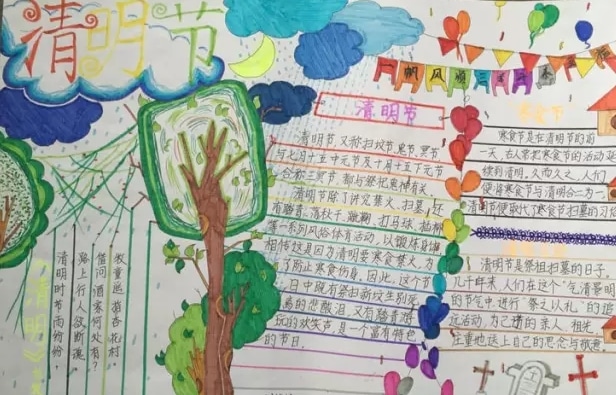 清明节
一帆风顺
清明节
清明节，又称扫坟节、鬼节、冥节
与七月十五中元节及十月十五下元节
合称三冥节，都与祭祀鬼神有关。
清明节除了讲究禁火、扫墓，还
有踏青、荡秋千、蹴鞠、打马球、插柳
等一系列风俗体育活动，以锻炼身体
相传这是因为清明要寒食禁火，为
了防止寒食伤身，因此，这个节
日中既有祭扫新坟生别死
离的悲酸泪，又有踏青游
玩的欢笑声，是一个富有特色
的节日。
寒食节
寒食节是在清明节的前
一天，古人常把寒食节的活动延
续到清明，久而久之，人们
便将寒食节与清明合二为一
清明节便取代了寒食节扫墓的
清明节是祭祖扫墓的日子，
几千年来，人们在这个"气清景明
的节气中，进行"祭之以礼"的追
远活动，为己逝的亲人、祖先
庄重地送上自己的思念与敬意。
《清明》
清明时节雨纷纷，
路上行人欲断魂。
借问酒家何处有？
牧童遥指杏花村。